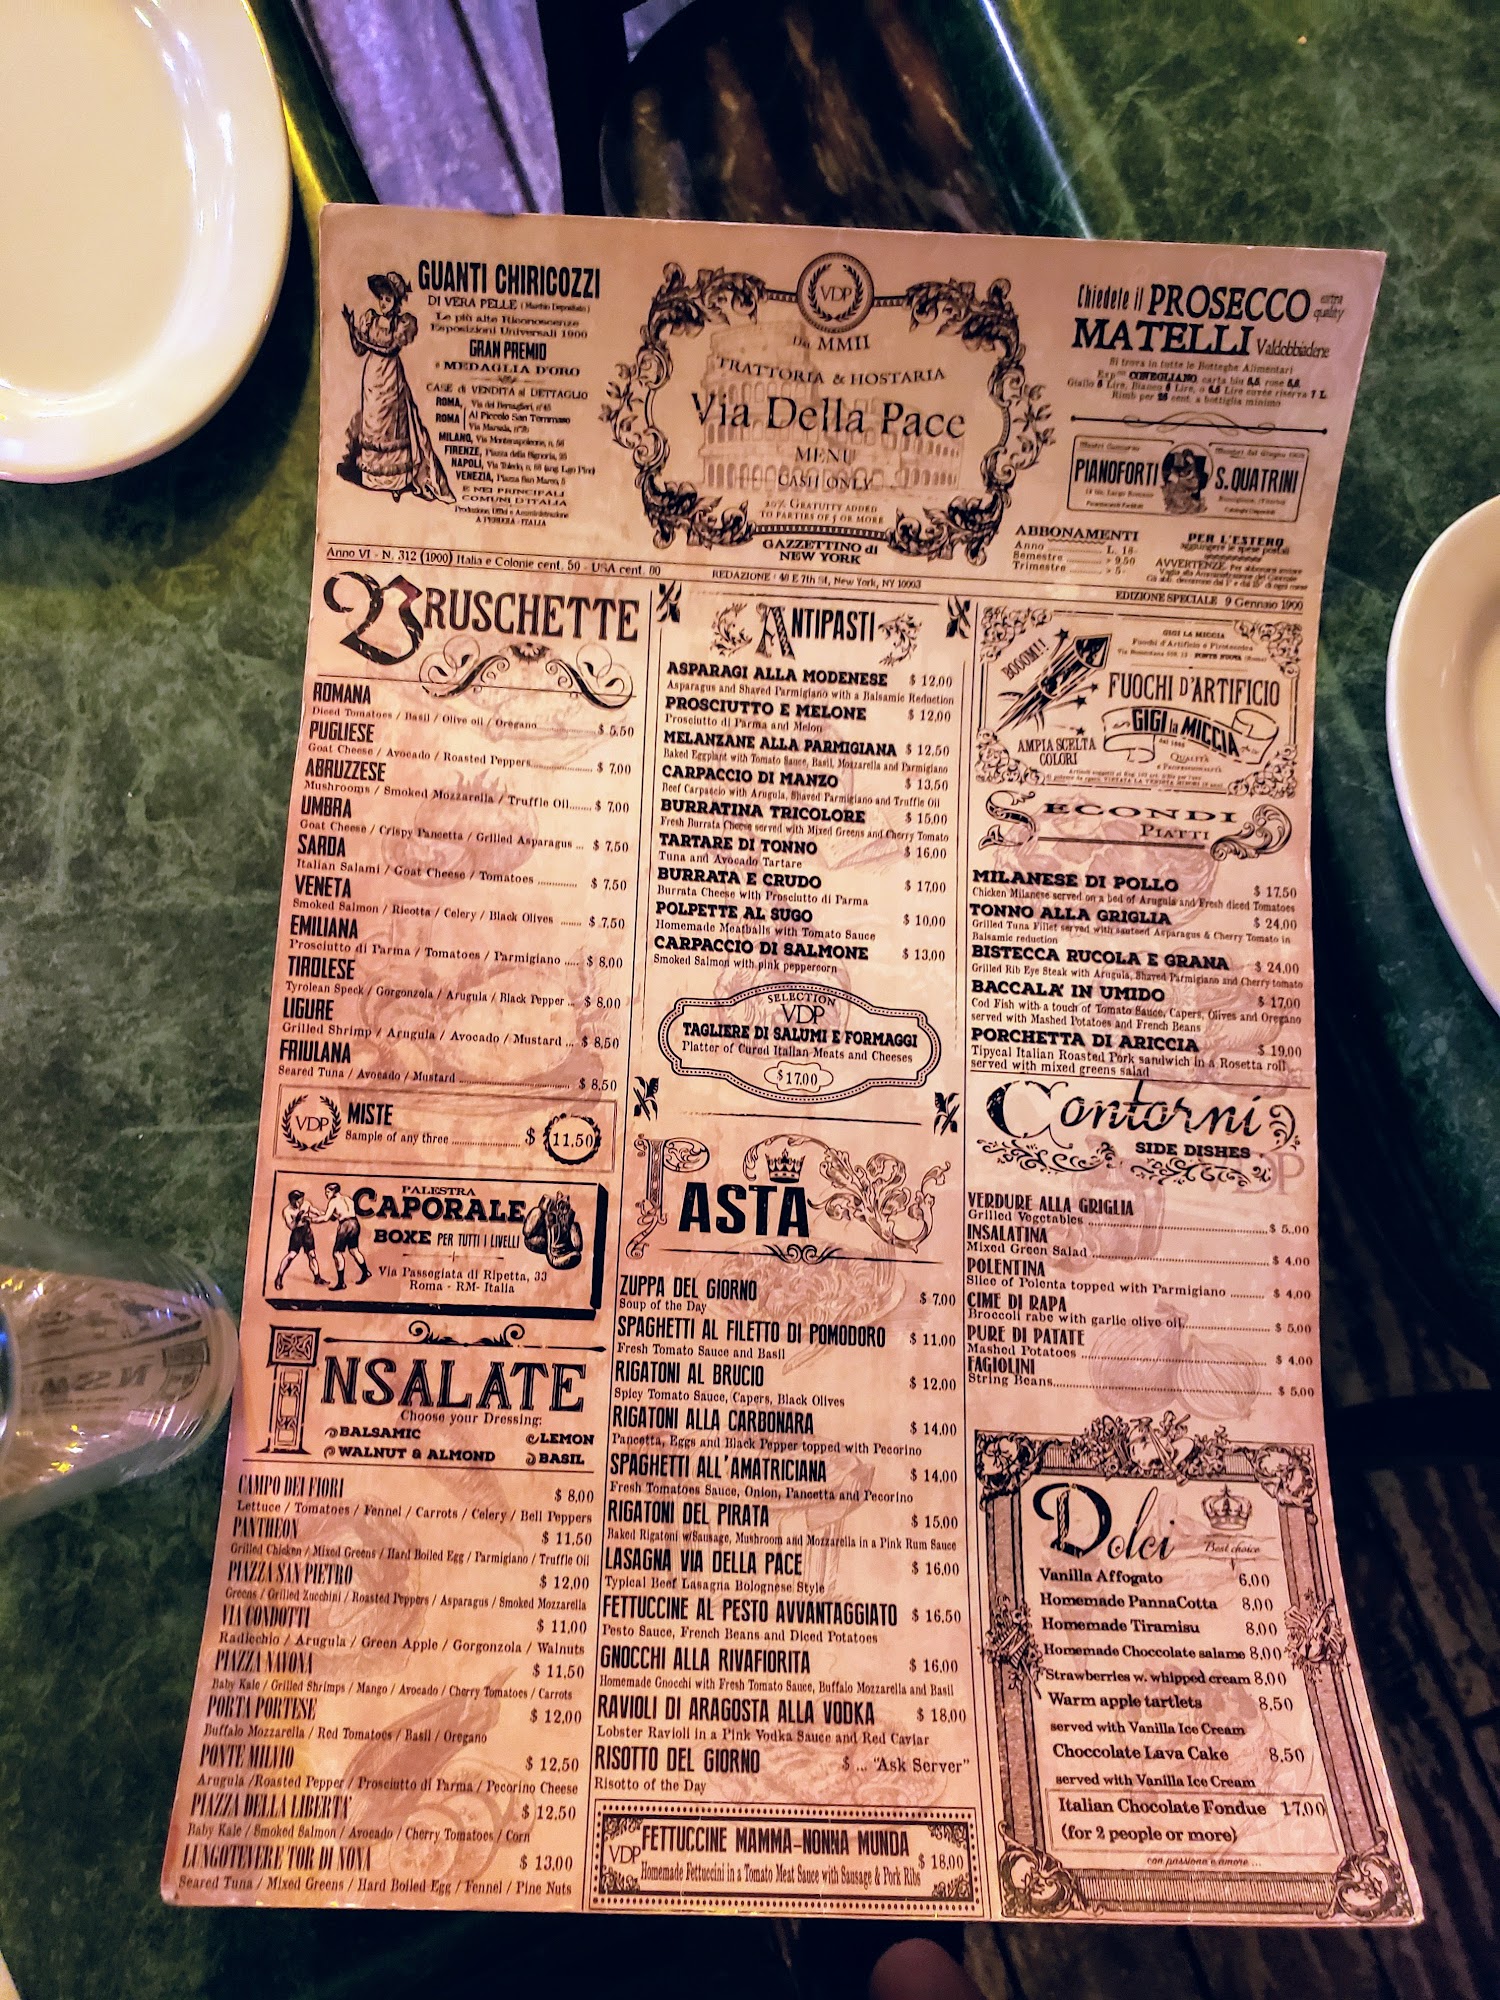 GUANTI CHIRICOZZI
DI VERA PELLE
Le più alte Riconoscenze
Esposizioni Universali 1900
GRAN PREMIO
e MEDAGLIA D'ORO
CASE di VENDITA al DETTAGLIO
ROMA,
ROMA | Al Piccolo San Tommaso
MILANO, Via Montenapoleone, n. 56
FIRENZE, Piazza della Signoria, 25
NAPOLI, Via Toledo, n. 66
VENEZIA, Piazza San Marco, 5
E NEI PRINCIPALI
COMUNI D'ITALIA
A PERUGIA - ITALIA
VDP
Da MMII
TRATTORIA & HOSTARIA
Via Della Pace
MENU
CASH ONLY
20% GRATUITY ADDED
TO PARTIES OF 5 OR MORE
GAZZETTINO di
NEW YORK
Chiedete il PROSECCO extra quality
MATELLI Valdobbiadene
Si trova in tutte le Botteghe Alimentari
PIANOFORTI S. QUATRINI
ABBONAMENTI
Anno L. 18-
Semestre » 9,50
Trimestre » 5-
PER L'ESTERO
Anno VI - N. 312 (1900) Italia e Colonie cent. 50 - USA cent. 80
REDAZIONE : 48 E 7th St, New York, NY 10003
EDIZIONE SPECIALE 9 Gennaio 1900
BRUSCHETTE
ROMANA
Diced Tomatoes / Basil / Olive oil / Oregano $ 5,50
PUGLIESE
Goat Cheese / Avocado / Roasted Peppers $ 7,00
ABRUZZESE
Mushrooms / Smoked Mozzarella / Truffle Oil $ 7,00
UMBRA
Goat Cheese / Crispy Pancetta / Grilled Asparagus $ 7,50
SARDA
Italian Salami / Goat Cheese / Tomatoes $ 7,50
VENETA
Smoked Salmon / Ricotta / Celery / Black Olives $ 7,50
EMILIANA
Prosciutto di Parma / Tomatoes / Parmigiano $ 8,00
TIROLESE
Tyrolean Speck / Gorgonzola / Arugula / Black Pepper $ 8,00
LIGURE
Grilled Shrimp / Arugula / Avocado / Mustard $ 8,50
FRIULANA
Seared Tuna / Avocado / Mustard $ 8,50
VDP
MISTE
Sample of any three $ 11,50
PALESTRA
CAPORALE
BOXE PER TUTTI I LIVELLI
Via Passegiata di Ripetta, 33
Roma - RM- Italia
INSALATE
Choose your Dressing:
BALSAMIC LEMON
WALNUT & ALMOND BASIL
CAMPO DEI FIORI $ 8,00
Lettuce / Tomatoes / Fennel / Carrots / Celery / Bell Peppers
PANTHEON $ 11,50
Grilled Chicken / Mixed Greens / Hard Boiled Egg / Parmigiano / Truffle Oil
PIAZZA SAN PIETRO $ 12,00
Greens / Grilled Zucchini / Roasted Peppers / Asparagus / Smoked Mozzarella
VIA CONDOTTI $ 11,00
Radicchio / Arugula / Green Apple / Gorgonzola / Walnuts
PIAZZA NAVONA $ 11,50
Baby Kale / Grilled Shrimps / Mango / Avocado / Cherry Tomatoes / Carrots
PORTA PORTESE $ 12,00
Buffalo Mozzarella / Red Tomatoes / Basil / Oregano
PONTE MILVIO $ 12,50
Arugula /Roasted Pepper / Prosciutto di Parma / Pecorino Cheese
PIAZZA DELLA LIBERTA' $ 12,50
Baby Kale / Smoked Salmon / Avocado / Cherry Tomatoes / Corn
LUNGOTEVERE TOR DI NONA $ 13,00
Seared Tuna / Mixed Greens / Hard Boiled Egg / Fennel / Pine Nuts
ANTIPASTI
ASPARAGI ALLA MODENESE $ 12,00
Asparagus and Shaved Parmigiano with a Balsamic Reduction
PROSCIUTTO E MELONE $ 12,00
Prosciutto di Parma and Melon
MELANZANE ALLA PARMIGIANA $ 12,50
Baked Eggplant with Tomato Sauce, Basil, Mozzarella and Parmigiano
CARPACCIO DI MANZO $ 13,50
Beef Carpaccio with Arugula, Shaved Parmigiano and Truffle Oil
BURRATINA TRICOLORE $ 15,00
Fresh Burrata Cheese served with Mixed Greens and Cherry Tomato
TARTARE DI TONNO $ 16,00
Tuna and Avocado Tartare
BURRATA E CRUDO $ 17,00
Burrata Cheese with Prosciutto di Parma
POLPETTE AL SUGO $ 10,00
Homemade Meatballs with Tomato Sauce
CARPACCIO DI SALMONE $ 13,00
Smoked Salmon with pink peppercorn
SELECTION
VDP
TAGLIERE DI SALUMI E FORMAGGI
Platter of Cured Italian Meats and Cheeses
$ 17,00
PASTA
ZUPPA DEL GIORNO $ 7,00
Soup of the Day
SPAGHETTI AL FILETTO DI POMODORO $ 11,00
Fresh Tomato Sauce and Basil
RIGATONI AL BRUCIO $ 12,00
Spicy Tomato Sauce, Capers, Black Olives
RIGATONI ALLA CARBONARA $ 14,00
Pancetta, Eggs and Black Pepper topped with Pecorino
SPAGHETTI ALL'AMATRICIANA $ 14,00
Fresh Tomatoes Sauce, Onion, Pancetta and Pecorino
RIGATONI DEL PIRATA $ 15,00
Baked Rigatoni w/Sausage, Mushroom and Mozzarella in a Pink Rum Sauce
LASAGNA VIA DELLA PACE $ 16,00
Typical Beef Lasagna Bolognese Style
FETTUCCINE AL PESTO AVVANTAGGIATO $ 16,50
Pesto Sauce, French Beans and Diced Potatoes
GNOCCHI ALLA RIVAFIORITA $ 16,00
Homemade Gnocchi with Fresh Tomato Sauce, Buffalo Mozzarella and Basil
RAVIOLI DI ARAGOSTA ALLA VODKA $ 18,00
Lobster Ravioli in a Pink Vodka Sauce and Red Caviar
RISOTTO DEL GIORNO $ ... "Ask Server"
Risotto of the Day
VDP
FETTUCCINE MAMMA-NONNA MUNDA $ 18,00
Homemade Fettuccini in a Tomato Meat Sauce with Sausage & Pork Ribs
GIGI LA MICCIA
Fuochi d'Artificio e Pirotecnica
BOOOM!!
FUOCHI D'ARTIFICIO
GIGI la MICCIA
AMPIA SCELTA
COLORI
QUALITÀ
SECONDI
PIATTI
MILANESE DI POLLO $ 17,50
Chicken Milanese served on a bed of Arugula and Fresh diced Tomatoes
TONNO ALLA GRIGLIA $ 24,00
Grilled Tuna Fillet served with sauteed Asparagus & Cherry Tomato in
Balsamic reduction
BISTECCA RUCOLA E GRANA $ 24,00
Grilled Rib Eye Steak with Arugula, Shaved Parmigiano and Cherry tomato
BACCALA' IN UMIDO $ 17,00
Cod Fish with a touch of Tomato Sauce, Capers, Olives and Oregano
served with Mashed Potatoes and French Beans
PORCHETTA DI ARICCIA $ 19,00
Tipycal Italian Roasted Pork sandwich in a Rosetta roll
served with mixed greens salad
Contorni
SIDE DISHES
VERDURE ALLA GRIGLIA
Grilled Vegetables $ 5,00
INSALATINA
Mixed Green Salad $ 4,00
POLENTINA
Slice of Polenta topped with Parmigiano $ 4,00
CIME DI RAPA
Broccoli rabe with garlic olive oil $ 5,00
PURE DI PATATE
Mashed Potatoes $ 4,00
FAGIOLINI
String Beans $ 5,00
Dolci
Best choice
Vanilla Affogato 6,00
Homemade PannaCotta 8,00
Homemade Tiramisu 8,00
Homemade Choccolate salame 8,00
Strawberries w. whipped cream 8,00
Warm apple tartlets 8,50
served with Vanilla Ice Cream
Choccolate Lava Cake 8,50
served with Vanilla Ice Cream
Italian Chocolate Fondue 17,00
(for 2 people or more)
con passione e amore ...